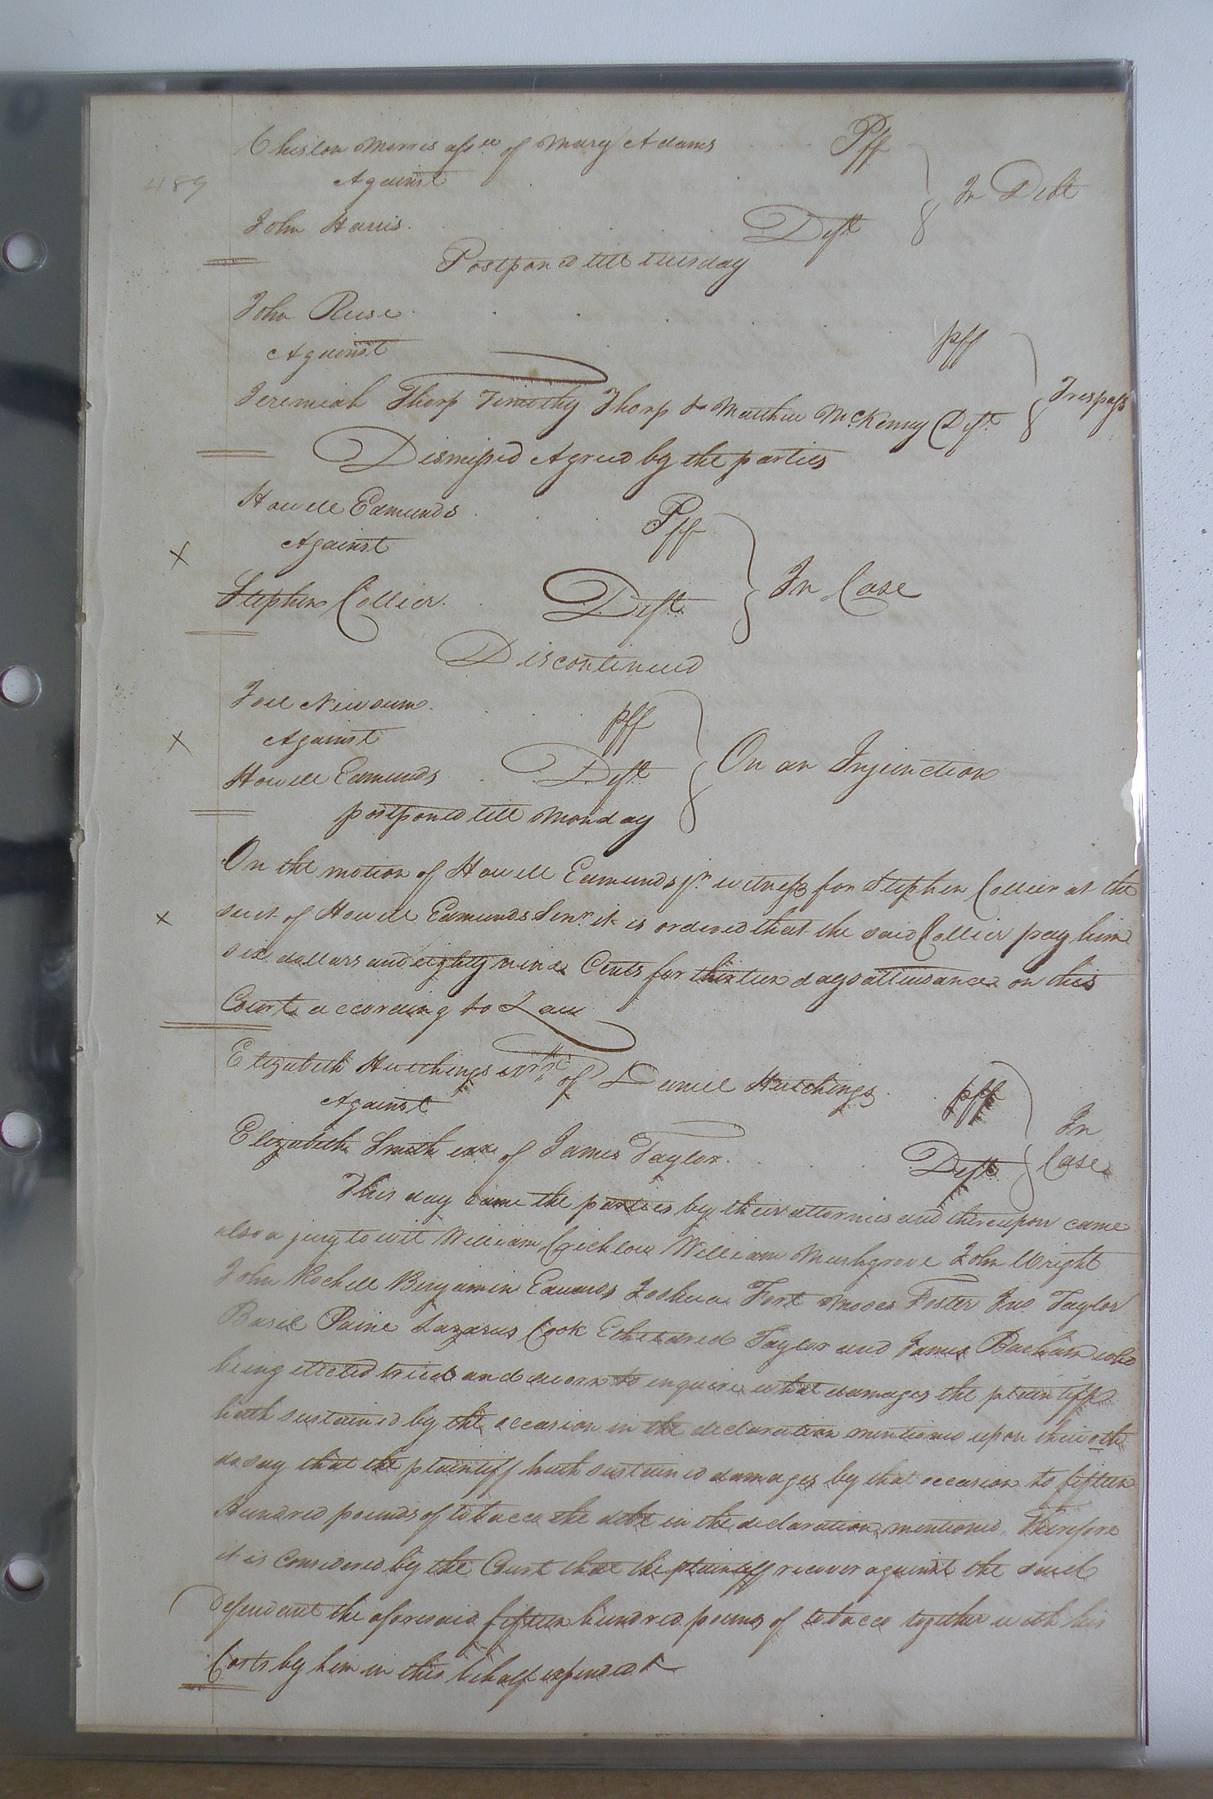 Chislon Morris assee of Mary Adams Pff
Against In Debt
489
John Harris. Deft
Postponed till tuesday
John Ruse pff
Against
Jeremiah Thorp Timothy Thorp & Matthew McKenny Deft Trespass
Dismissed Agreed by the parties
Howell Edmunds Pff
Against In Case
x
Stephen Collier. Deft
Discontinued
Joel Newsum. pff
Against On an Injunction
x
Howell Edmunds Deft
postponed till Monday
On the motion of Howell Edmunds jr. witness for Stephen Collier at the
x suit of Howell Edmunds Senr. it is ordered that the said Collier pay him
six dollars and eighty nine Cents for thirteen days attendance on this
Court according to Law
Elizabeth Hutchings of Daniel Hutchings pff
Against In
Elizabeth Smith exx of James Taylor. Deft Case
This day came the parties by their attornies and thereupon came
also a jury to wit William Crichlow William Mushgrove John Wright
John Rochell Benjamin Edwards Joshua Fort Moses Foster Jno. Taylor
Basil Paine Lazarus Cook Etheldred Taylor and James who
being elected tried and sworn to enquire what damages the plaintiff
hath sustained by the occasion in the declaration mentioned upon their oth
do say that the plaintiff hath sustained damages by that occasion to fifteen
Hundred pounds of tobacco the debt in the declaration mentioned. Therefore
it is Considered by the Court that the plaintiff recover against the said
Defendant the aforesaid fifteen hundred pounds of tobacco together with his
Costs by him in this behalf expended